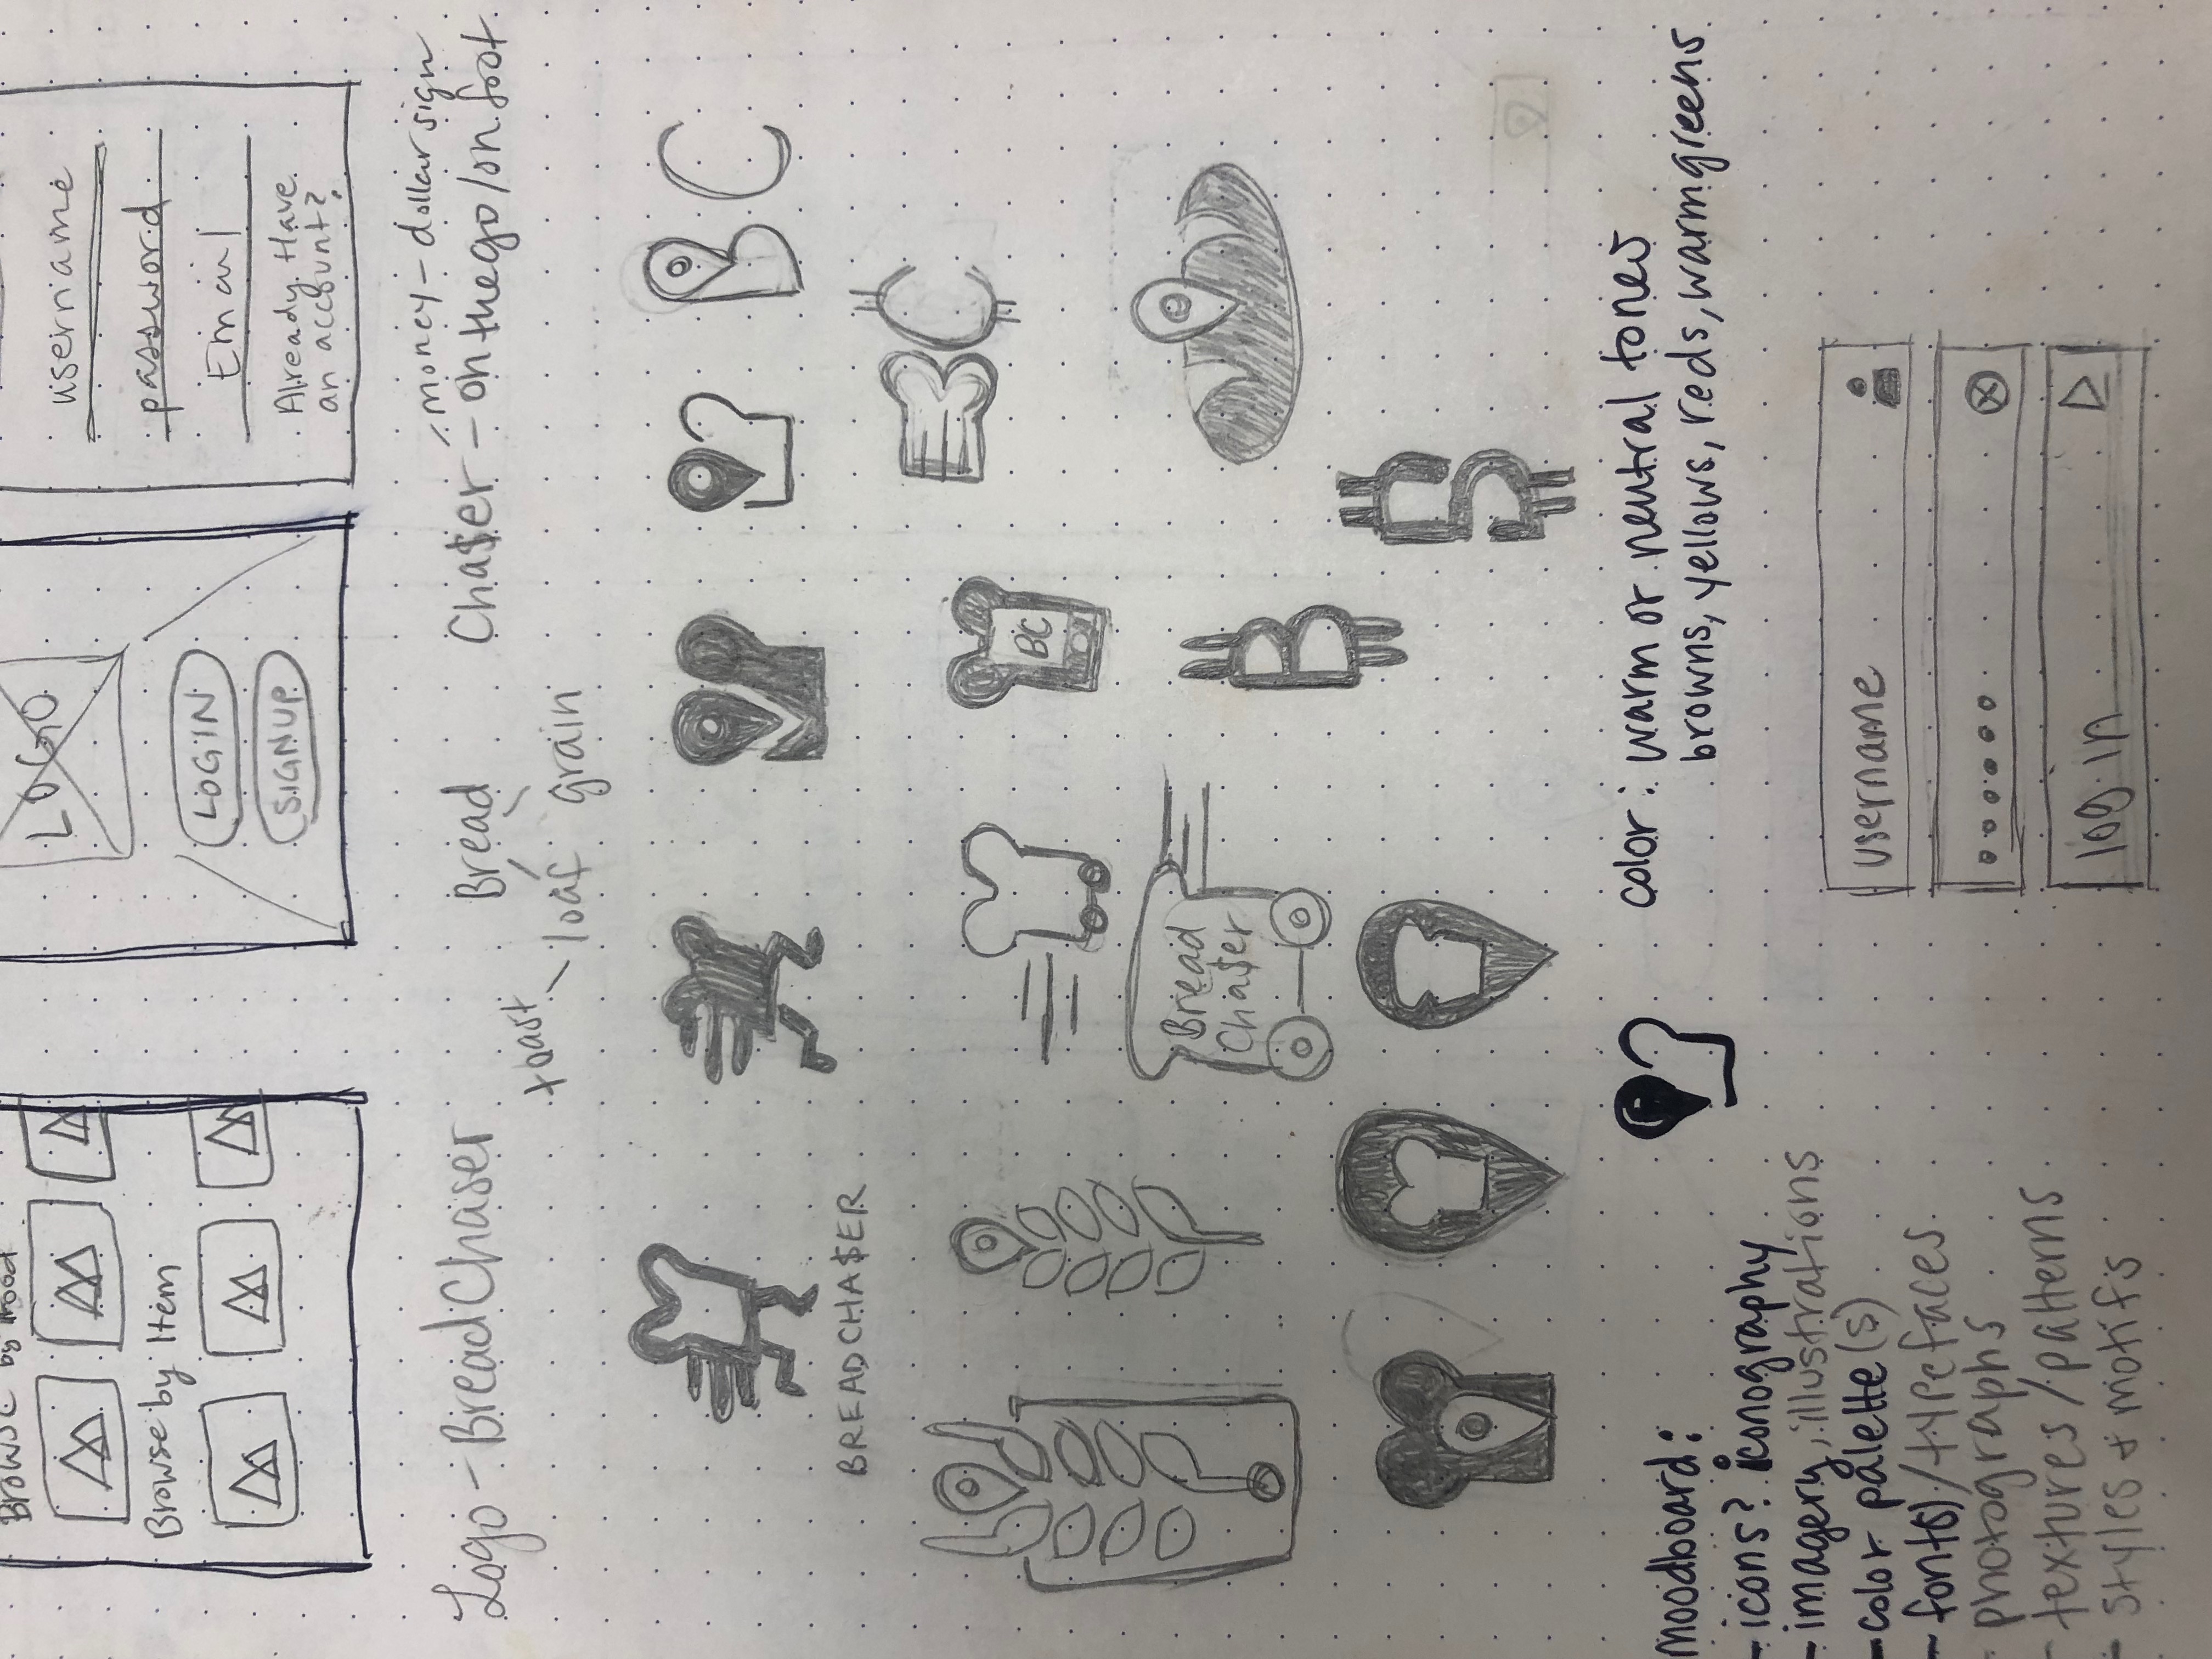 Browse by Mood
Browse by Item
LOGO
LOGIN
SIGNUP
username
password
Email
Already Have
an account?
Logo - BreadChaser
Bread
toast
loaf
grain
money - dollar sign
Cha$er - on the go/on foot
BREADCHA$ER
BC
BC
BC
Bread
Cha$er
B
S
moodboard:
- icons? iconography
- imagery, illustrations
- color palette(s)
- font(s)/typefaces
- photographs
- textures/patterns
- styles + motifs
color: warm or neutral tones
browns, yellows, reds, warm greens
username
log in